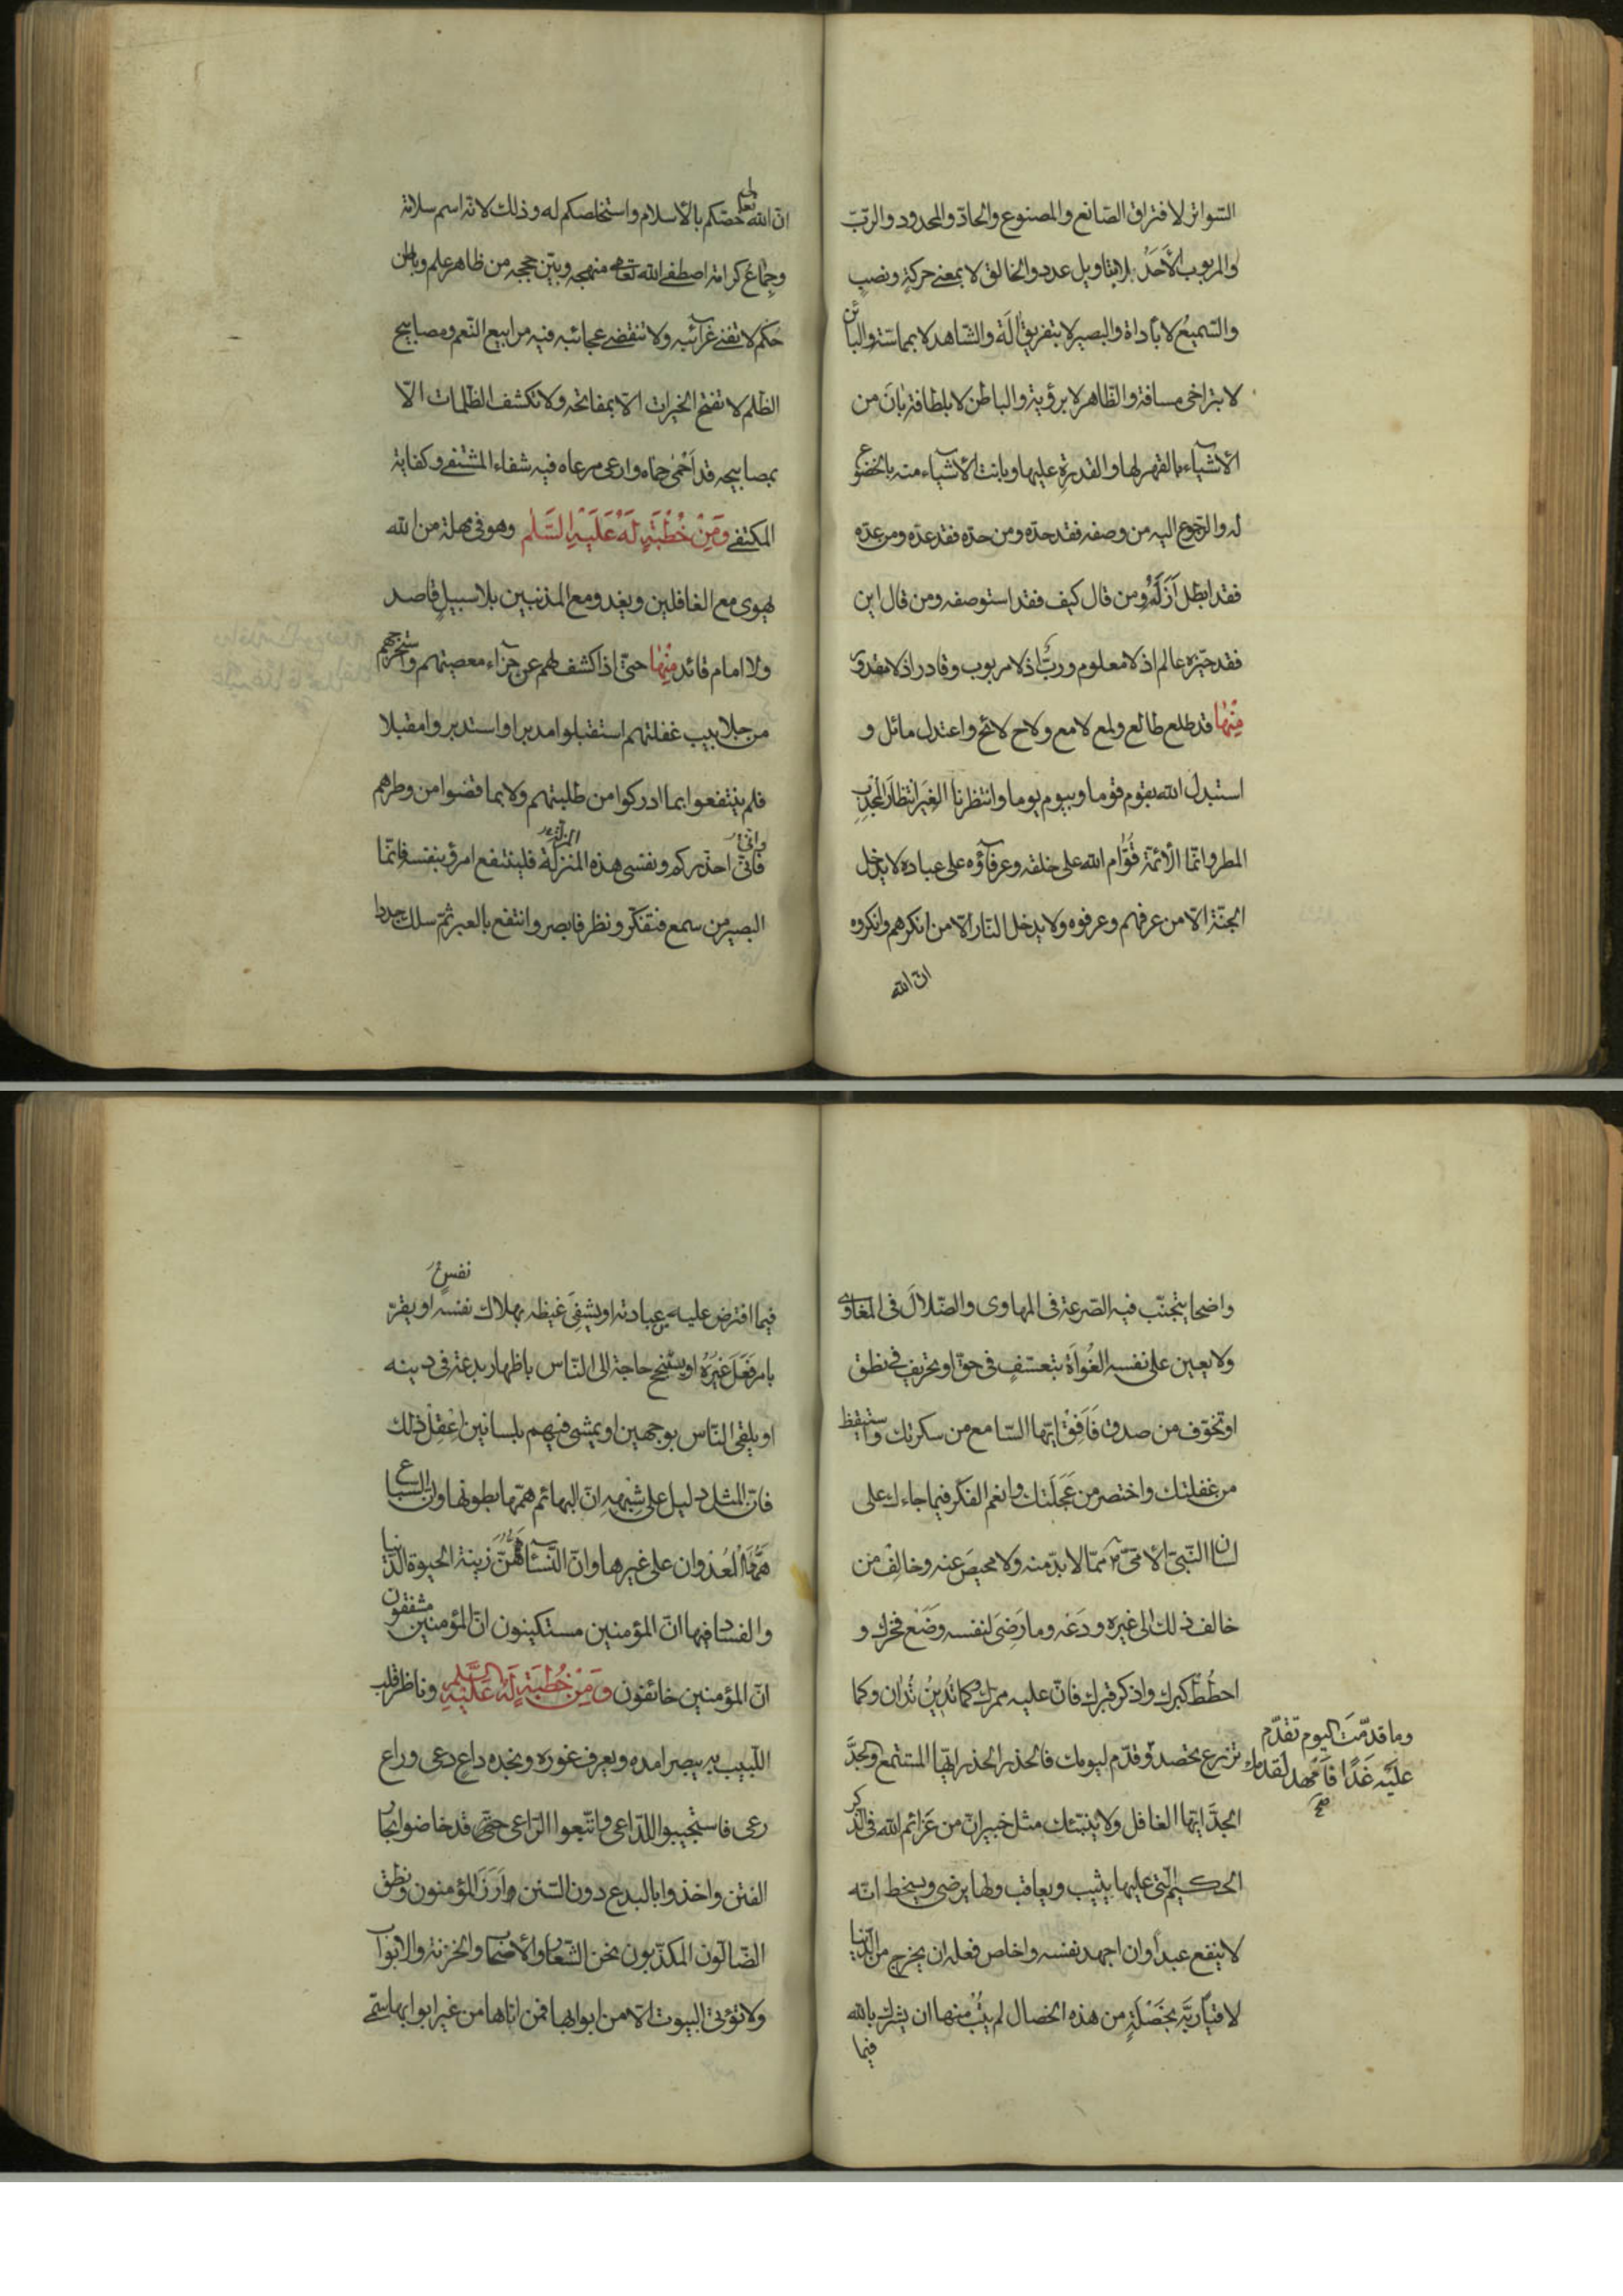 السواتر لافتراق الصّانع والمصنوع والحادّ والمحدود والربّ
والمربوب الأَحَدُ بلا بتاويل عدد والخالق لا بمعنى حركةٍ ونصبٍ
والسّميعُ لا بأداة والبصير لا بتفريق آلَة والشّاهد لا بمماسّة والبائن
لا بتراخى مسافة والظّاهر لا برؤية والباطن لا بلطافة بَانَ من
الأشيآء بالقهر لها والقدرةِ عليها وبانت الأشيآء منه بالخضوع
له والرّجوع اليه من وصفه فقد حدّه ومن حدّه فقد عدّه ومن عدّه
فقد ابطل اَزَلَهُ ومن قال كيف فقد استوصفه ومن قال اين
فقد حيّزه عالم اذ لا معلوم وربٌّ اذ لا مربوب وقادر اذ لا مقدور
مِنْهٰا قد طلع طالع ولمع لامع ولاح لائح واعتدل مائل و
استبدل الله بقوم قوما وبيوم يوما وانتظرنا الغِيَر انتظارَ المُجْدِبِ
المطر وانّما الأئمّة قُوّام الله على خلقه وعرفآؤه على عباده لا يدخل
الجنّة الاّ من عرفهم وعرفوه ولا يدخل النّار الاّ من انكرهم وانكروه
انّ الله
انّ الله تعالى خصّكم بالأسلام واستخلصكم له وذلك لانّه اسم سلامة
وجِمٰاعُ كرامة اصطفى الله تعالى منهجه وبيّن حججه من ظاهر علم وباطن
حُكم لا تفنى غرآئبه ولا تنقضى عجائبه فيه مرابيع النّعم ومصابيح
الظّلم لا تفتح الخيرات الاّ بمفاتحه ولا تكشف الظّلمات الاّ
بمصابيحه قد اَحْمٰى حِماه وارعى مرعاه فيه شفاء المشتفى وكفاية
المكتفى وَمِنْ خُطْبَةٍ لَهُ عَلَيْهِ السَّلٰم وهو فى مهلة من الله
يهوى مع الغافلين ويغدو مع المذنبين بلا سبيلٍ قاصد
ولا امام قائد مِنْهٰا حتّى اذا كشف لهم عن جزآء معصيتهم واستخرجهم
من جلابيب غفلتهم استقبلوا مدبرا واستدبروا مقبلا
فلم ينتفعوا بما ادركوا من طلبتهم ولا بما قضوا من وطرهم
وانّى
فانّى احذّركم ونفسى هذه المنزلة فلينتفع امرؤ بنفسه فانّما
البصير من سمع فتفكّر ونظر فابصر وانتفع بالعبر ثمّ سلك جددا
واضحا يتجنّب فيه الصّرعة فى المهاوى والضّلالَ فى المغاوى
ولا يعين على نفسه الغُواَة بتعسّفٍ فى حقّ او تحريف فى نطق
او تخوّف من صدق فَاَفِقْ ايّها السّامع من سكرتك واستيقظ
من غفلتك واختصر من عَجَلَتك وانعم الفكر فيما جاءك على
لسان النّبىّ الأمّىّ ممّا لا بدّ منه ولا محيصَ عنه وخالِفْ من
خالف ذلك الى غيره ودَعْه وما رَضِىَ لنفسه وضَعْ فخرك و
احطُطْ كبرك واذكر قبرك فانّ عليه ممرّك وكما تُدينُ تُدان وكما
تزرع تحصد وقدّم ليومك فالحذر الحذر ايّها المستمع والجدَّ
وما قدّمت اليوم تقدّم
عليه غَدًا فَامْهد لقدمك
صح
الجدَّ ايّها الغافل ولا ينبّئك مثل خبير انّ من عَزائم الله فى الذّكر
الحكيم الّتى عليها يثيب ويعاقب ولها يرضى ويسخط انّه
لا ينفع عبداً وان اجهد نفسه واخلص فعله ان يخرج من الدّنيا
لاقياً ربَّه بخَصْلَةٍ من هذه الخصال لم يتُبْ منها ان يشرك بالله
فيما
نفسٍ
فيما افترض عليه من عبادته او يشفِىَ غيظه بهلاك نفسه او يقرّ
بامر فَعَلَ غَيْرُهُ او يستنجح حاجة الى النّاس باظهار بدعة فى دينه
او يلقى النّاس بوجهين او يمشى فيهم بلسانين اِعْقِلْ ذلك
فانّ المثل دليل على شِبْهِهِ انّ البهائم همّها بطونها وانّ السّباع
هَمُّهَا الْعُدْوان على غيرها وانّ النّسآء هَمُّهُنّ زينة الحيوة الدّنيا
والفساد فيها انّ المؤمنين مستكينون انّ المؤمنين مشفقون
انّ المؤمنين خائفون وَمِنْ خُطْبَةٍ لَهُ عَلَيْهِ السَّلٰم وناظر قلب
اللّبيب به يبصر امده ويعرف غوره ونجده داعٍ دعى وراع
رعى فاستجيبوا للدّاعى واتّبعوا الرّاعى حتّى قد خاضوا بحار
الفتن واخذوا بالبدع دون السّنن واَرَزَ المؤمنون ونطق
الضّالّون المكذّبون نحن الشّعار والأصحاب والخزنة والابواب
ولا تؤتى البيوت الاّ من ابوابها فمن اتاها من غير ابوابها سمّى